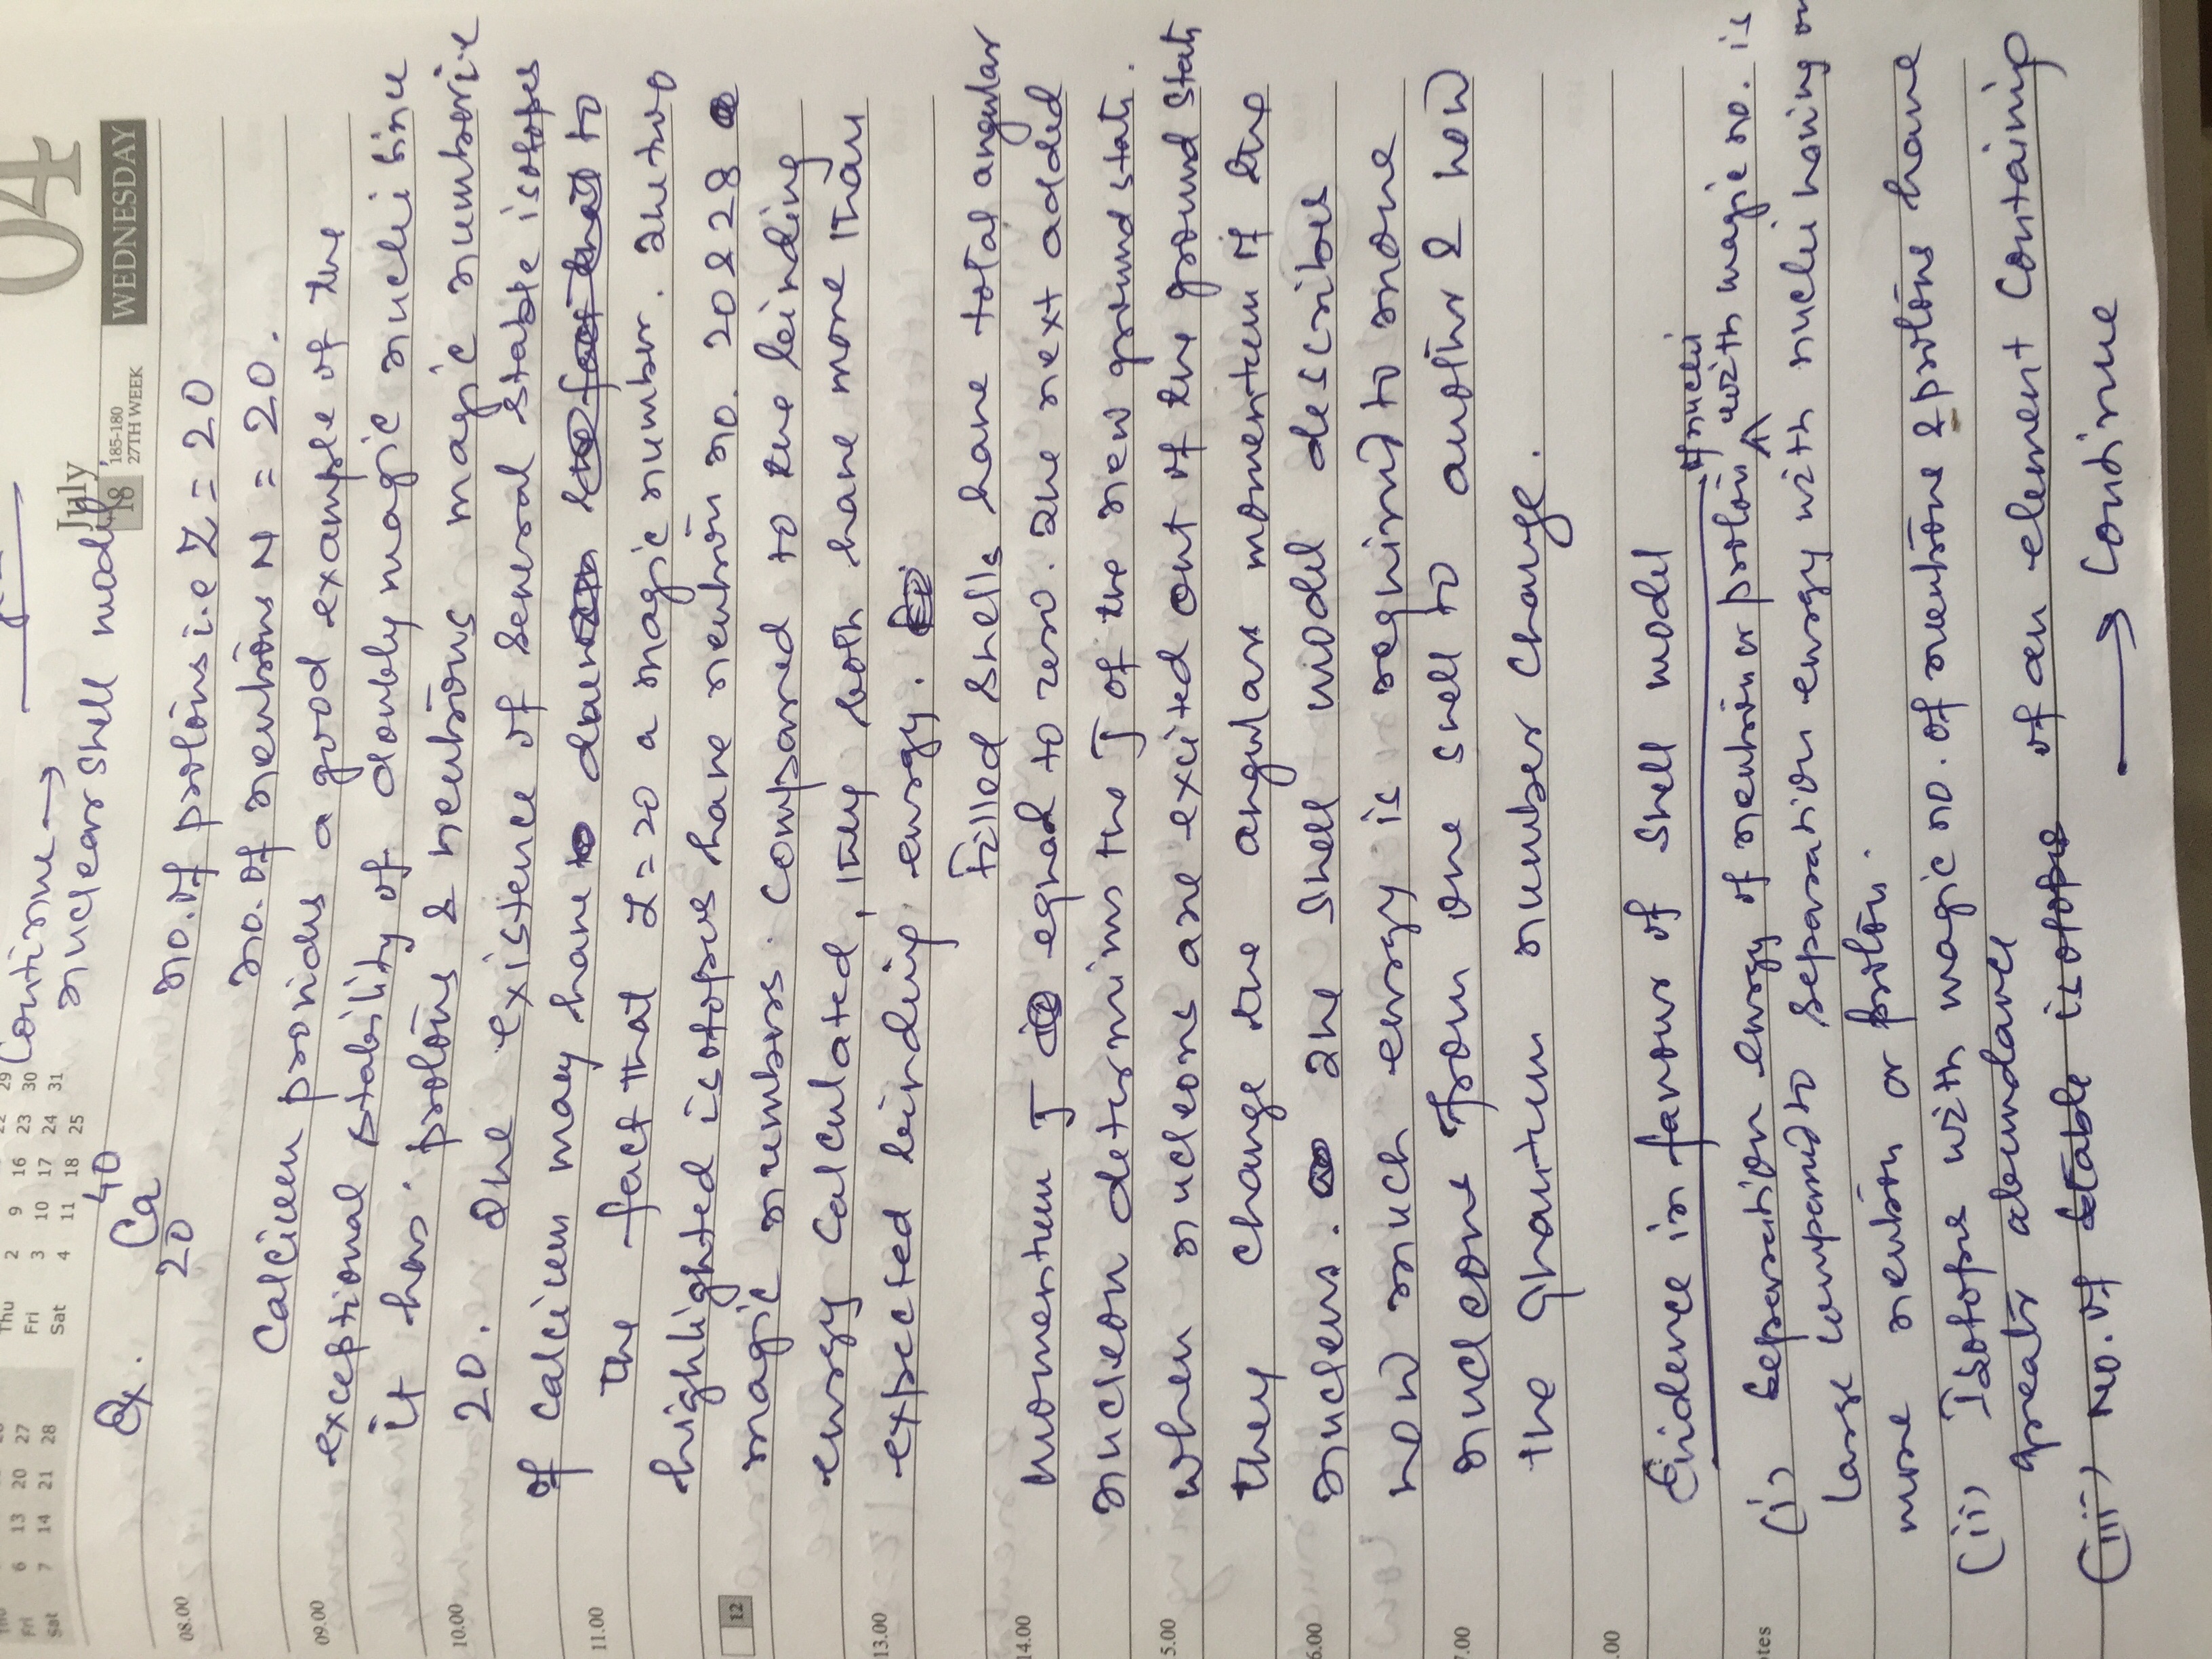 04
July
18
185-180
27TH WEEK
WEDNESDAY
Thu 2 9 16 23 30
Fri 3 10 17 24 31
Sat 4 11 18 25
Fri 6 13 20 27
Sat 7 14 21 28
Continue →
nuclear shell model
Ex. 20 Ca 40 no. of protons i.e Z = 20
no. of neutrons N = 20.
Calcium provides a good example of the
exceptional stability of doubly magic nuclei since
it has protons & neutrons magic numbers i.e
20. The existence of several stable isotopes
of calcium may have to do with the fact that to
the fact that Z = 20 a magic number. The two
highlighted isotopes have neutron no. 20 & 28
magic numbers. Compared to the binding
energy calculated, they both have more than
expected binding energy.
Filled shells have total angular
momentum J equal to zero. The next added
nucleon determines the J of the new ground state.
When nucleons are excited out of the ground state
they change the angular momentum of the
nucleus. The shell model describes
how much energy is required to move
nucleons from one shell to another & how
the quantum number change.
Evidence in favour of shell model
(i) Separation energy of neutron or proton of nuclei with magic no. is
large compared to separation energy with nuclei having one
more neutron or proton.
(ii) Isotopes with magic no. of neutrons & protons have
greater abundance
(iii) No. of stable isotopes of an element containing
→ Continue
08.00
09.00
10.00
11.00
12
13.00
14.00
5.00
6.00
7.00
.00
otes